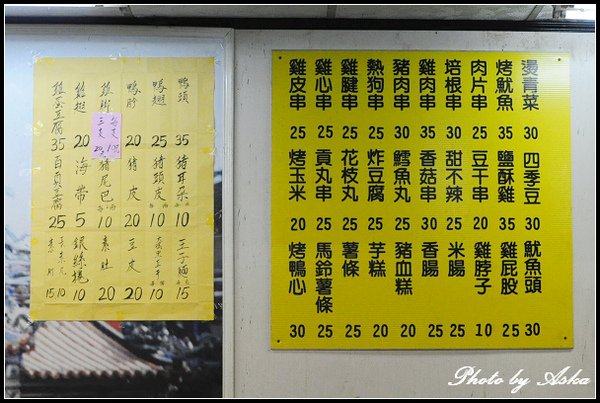 鴨頭 35
鴨翅 25
鴨胗 20
雞翅 20
雞蛋豆腐 35
豬耳朵 10
豬頭皮 10
豬皮 20
豬尾巴 10
海帶 5
百頁豆腐 25
王子麵 15
10
豆皮 20
素肚 20
銀絲捲 10
10
15
燙青菜 30
烤魷魚 35
肉片串 30
培根串 30
雞肉串 35
豬肉串 30
熱狗串 25
雞腱串 25
雞心串 25
雞皮串 25
四季豆 30
鹽酥雞 35
豆干串 20
甜不辣 25
香菇串 25
鱈魚丸 25
炸豆腐 25
花枝丸 25
貢丸串 25
烤玉米 20
魷魚頭 30
雞屁股 25
雞脖子 10
米腸 25
香腸 25
豬血糕 20
芋糕 20
薯條 25
馬鈴薯條 25
烤鴨心 30
Photo by Aska